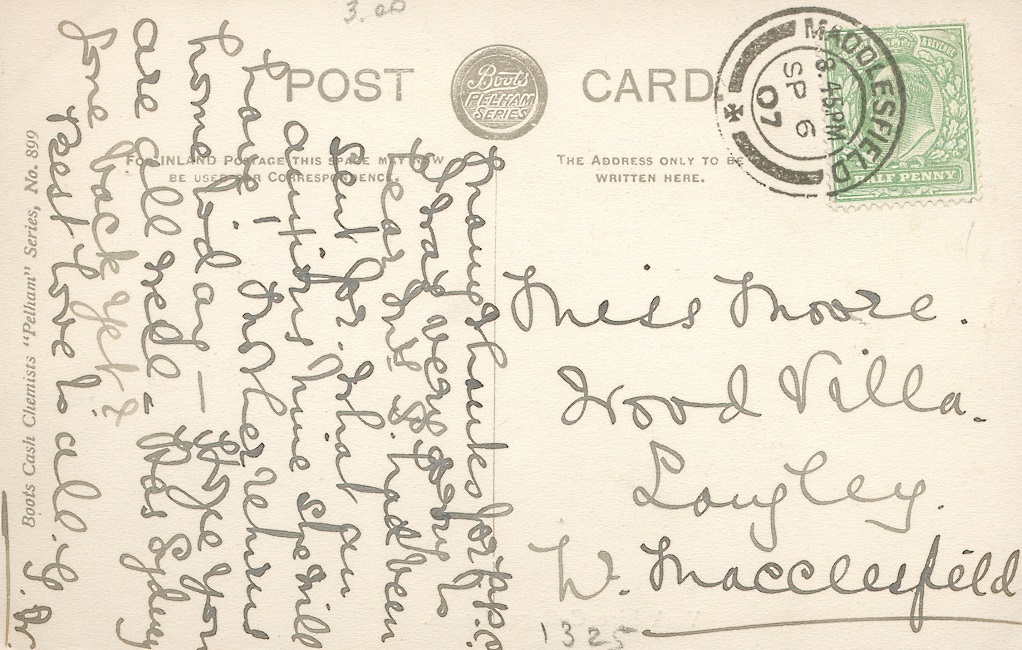 3.00
POST CARD.
Boots
PELHAM
SERIES
MACCLESFIELD
8.45PM
SP 6
07
& REVENUE
HALF PENNY
FOR INLAND POSTAGE THIS SPACE MAY NOW
BE USED FOR CORRESPONDENCE.
THE ADDRESS ONLY TO BE
WRITTEN HERE.
Many thanks for p.p.c.
I was very sorry to
hear Mrs S. had been
sent for. What an
anxious time she will
have! Mother returns
home Friday — Hope you
are all well - Has Sydney
gone back yet?
Best love to all. G. Br.
Miss Moore.
Wood Villa.
Langley.
W. Macclesfield
1325
Boots Cash Chemists "Pelham" Series, No. 899